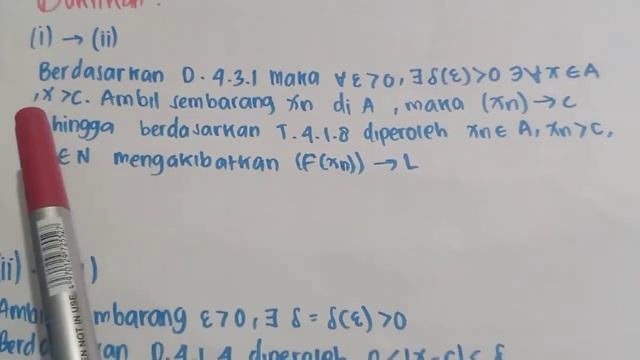 Buktikan:
(i) → (ii)
Berdasarkan D.4.3.1 maka ∀ε>0, ∃ δ(ε)>0 ∋ ∀x∈A
,x>c. Ambil sembarang xn di A, maka (xn)→c
hingga berdasarkan T.4.1.8 diperoleh xn∈A, xn>c,
∈N mengakibatkan (f(xn))→L
ii)
Amb mbarang ε>0, ∃ δ = δ(ε)>0
kan D.4.1.4 diperoleh